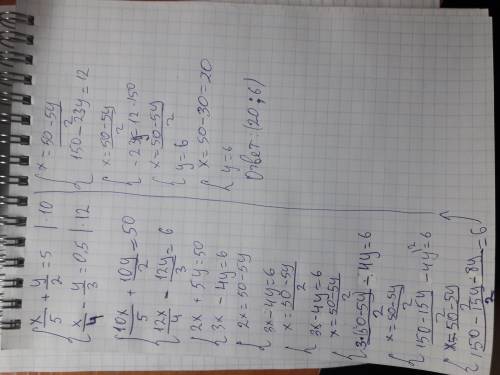 { x/5 + y/2 = 5 | ·10
{ x/4 - y/3 = 0,5 | ·12
{ 10x/5 + 10y/2 = 50
{ 12x/4 - 12y/3 = 6
{ 2x + 5y = 50
{ 3x - 4y = 6
{ 2x = 50 - 5y
{ 3x - 4y = 6
{ x = 50-5y/2
{ 3x - 4y = 6
{ x = 50-5y/2
{ 3·50-5y/2 - 4y = 6
{ x = 50-5y/2
{ 150-15y/2 - 4y = 6
{ x = 50-5y/2
{ 150-15y-8y/2 = 6
{ x = 50-5y/2
{ 150 - 23y = 12
{ x = 50-5y/2
{ -23y = 12-150
{ x = 50-5y/2
{ y = 6
{ x = 50 - 30 = 20
{ y = 6
Ответ: (20; 6)